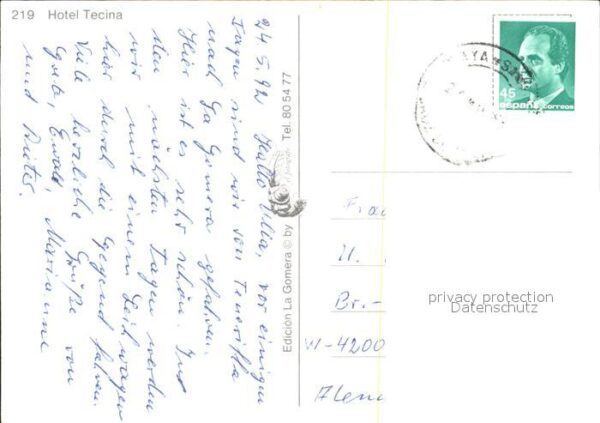 219 Hotel Tecina
24.5.92 Hallo Ulla, vor einigen
Tagen sind wir von Teneriffa
nach La Gomera gefahren.
Hier ist es sehr schön. In
den nächsten Tagen werden
wir mit einem Leihwagen
hier durch die Gegend fahren.
Viele herzliche Grüße von
Gute, Ewald, Marianne
und Dieter.
Edición La Gomera © by
Tel. 80 54 77
PLAYA
45
españa correos
Frau
H.
Br.-
W-4200
privacy protection
Datenschutz